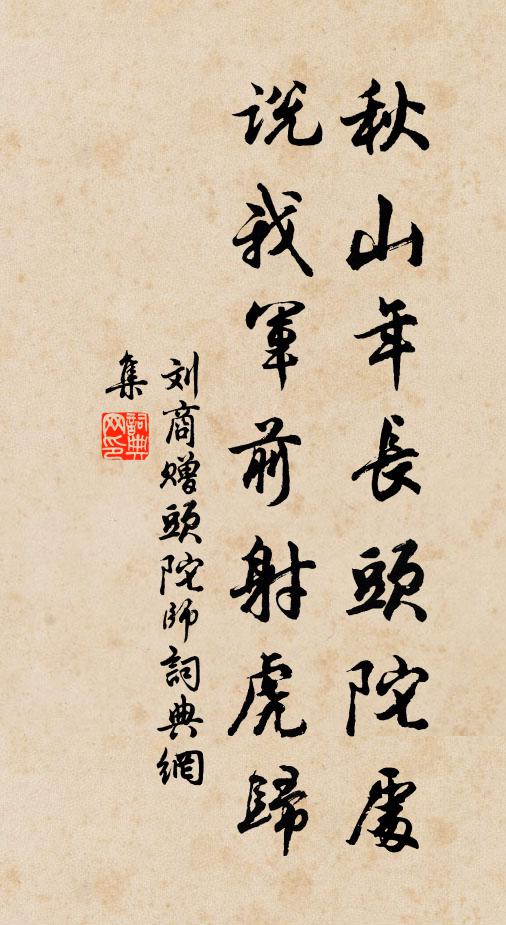 秋山年長頭陀處
説我軍前射虎歸
刘商贈頭陀师詞典網
集
詞典
网印